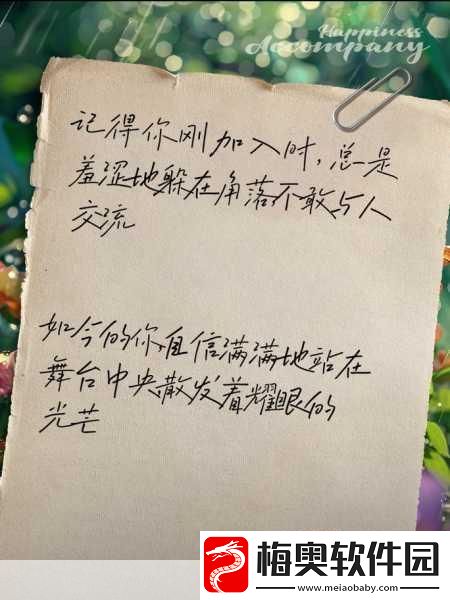 Happiness
Accompany
记得你刚加入时，总是
羞涩地躲在角落不敢与人
交流
如今的你自信满满地站在
舞台中央散发着耀眼的
光芒
梅奥软件园
www.meiaobaby.com